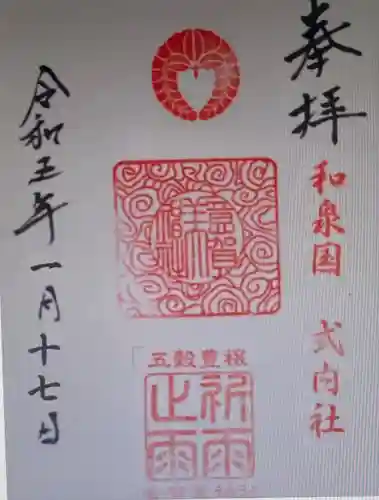 奉拝
和泉国 式内社
五穀豊穣
祈雨
止雨
令和五年一月十七日